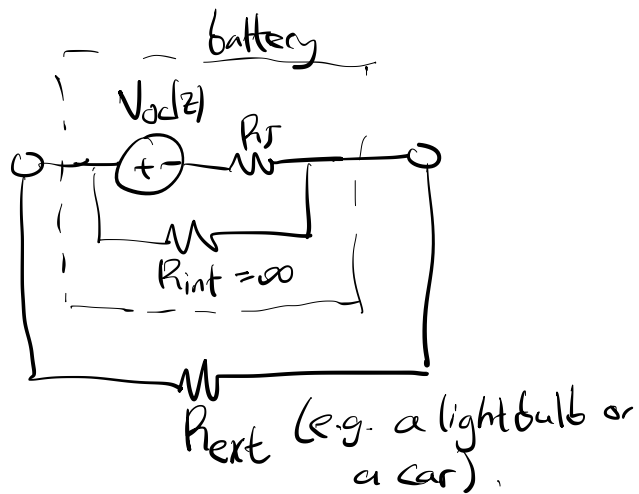 battery
Voc(z)
Rs
+ -
Rint = ∞
Rext (e.g. a lightbulb or
a car).